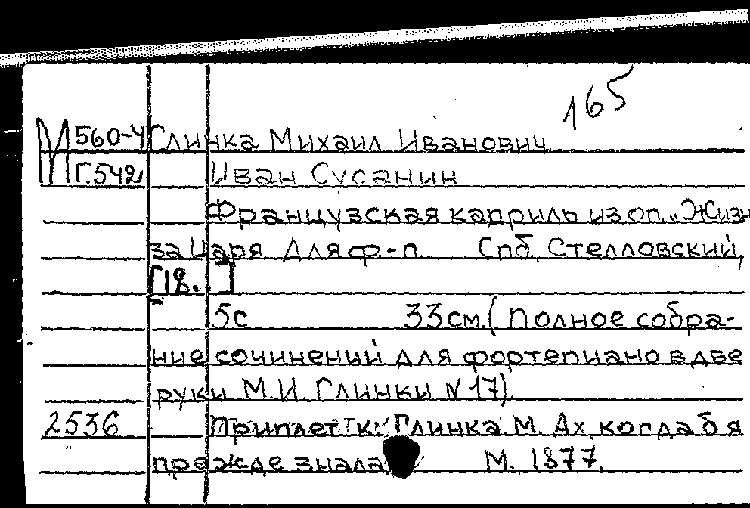 165
М 560-4 Глинка Михаил Иванович
Г.542 Иван Сусанин
Французская кадриль из оп. „Жизн
за царя Для ф-п. Спб, Стелловский,
[18. ]
5с 33см. (Полное собра-
ние сочинений для фортепиано в две
руки М.И. Глинки N 17).
2536 Приплет. к: Глинка М. Ах, когда б я
прежде знала М. 1877.